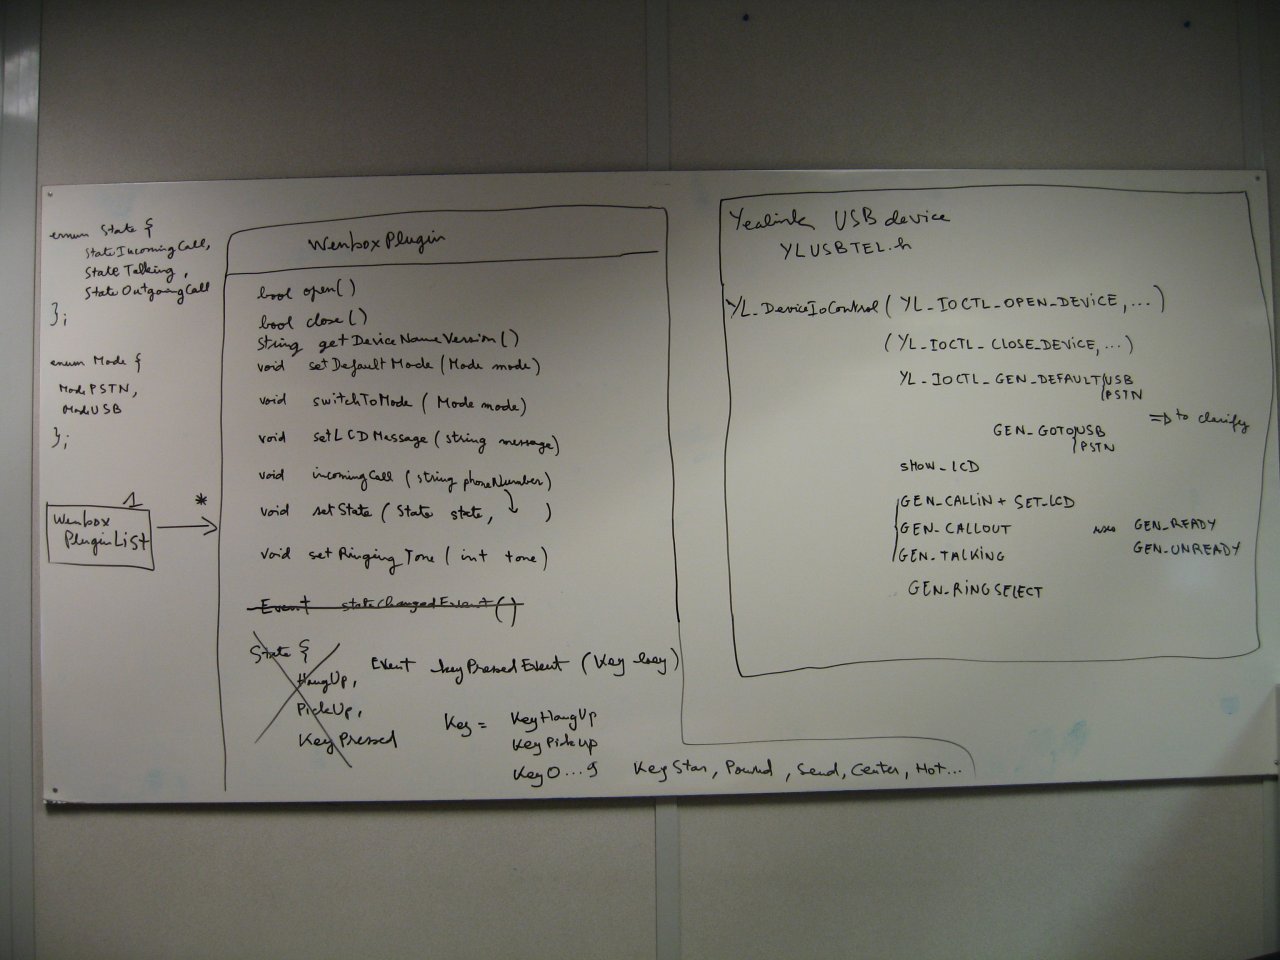 enum State {
StateIncomingCall,
State Talking,
StateOutgoingCall
};
enum Mode {
ModePSTN,
ModeUSB
};
Wenbox
PluginList
1
*
WenboxPlugin
bool open()
bool close()
string getDeviceNameVersion()
void setDefaultMode (Mode mode)
void switchToMode (Mode mode)
void setLCDMessage (string message)
void incomingCall (string phoneNumber)
void setState (State state, )
void setRingingTone (int tone)
Event stateChangedEvent()
State {
HangUp,
PickUp,
KeyPressed
Event keyPressedEvent (Key key)
Key = KeyHangUp
KeyPickUp
Key0...9 KeyStar, Pound, Send, Center, Hot...
Yealink USB device
YLUSBTEL.h
YL_DeviceIoControl (YL_IOCTL_OPEN_DEVICE, ...)
(YL_IOCTL_CLOSE_DEVICE, ...)
YL_IOCTL_GEN_DEFAULT USB
PSTN
=> to clarify
GEN_GOTO USB
PSTN
SHOW_LCD
GEN_CALLIN + SET_LCD
GEN_CALLOUT
GEN_TALKING
GEN_READY
GEN_UNREADY
GEN_RINGSELECT